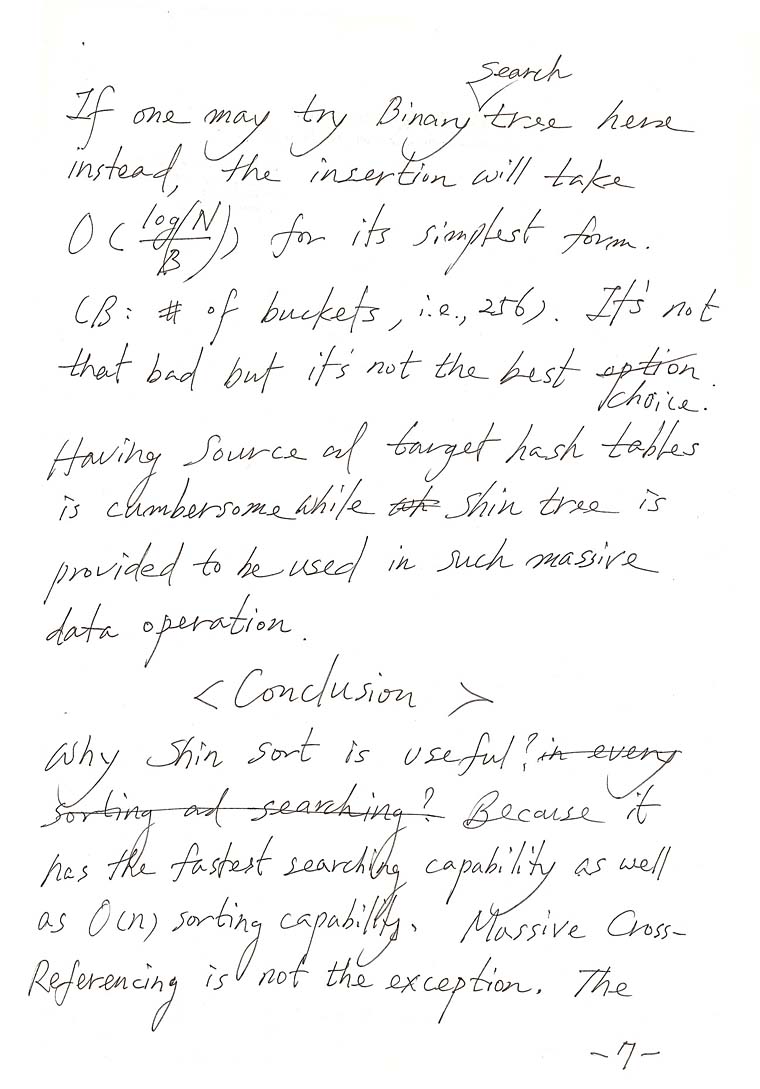 If one may try Binary search tree here
instead, the insertion will take
O(log(N/B)) for its simplest form.
(B: # of buckets, i.e., 256). It's not
that bad but it's not the best option choice.
Having Source ad target hash tables
is cumbersome while Shin tree is
provided to be used in such massive
data operation.
<Conclusion>
Why Shin sort is useful? in every
sorting ad searching? Because it
has the fastest searching capability as well
as O(n) sorting capability. Massive Cross-
Referencing is not the exception. The
-7-